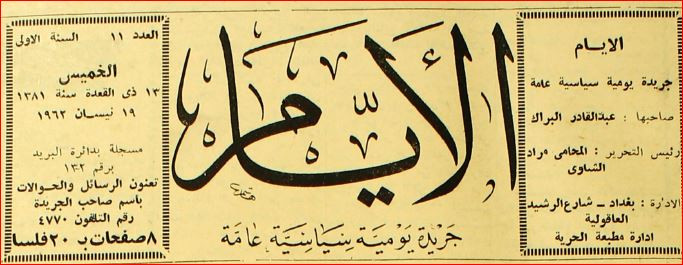 الايام
جريدة يومية سياسية عامة
صاحبها : عبدالقادر البراك
رئيس التحرير : المحامى مراد
الشاوى
الادارة : بغداد – شارع الرشيد
العاقولية
ادارة مطبعة الحرية
الأيام
جريدة يومية سياسية عامة
العدد ١١ السنة الاولى
الخميس
١٣ ذى القعدة سنة ١٣٨١
١٩ نيسان ١٩٦٢
مسجلة بدائرة البريد
برقم ١٣٢
تعنون الرسائل والحوالات
باسم صاحب الجريدة
رقم التلفون ٤٧٧٠
٨ صفحات بـ ٢٠ فلسا